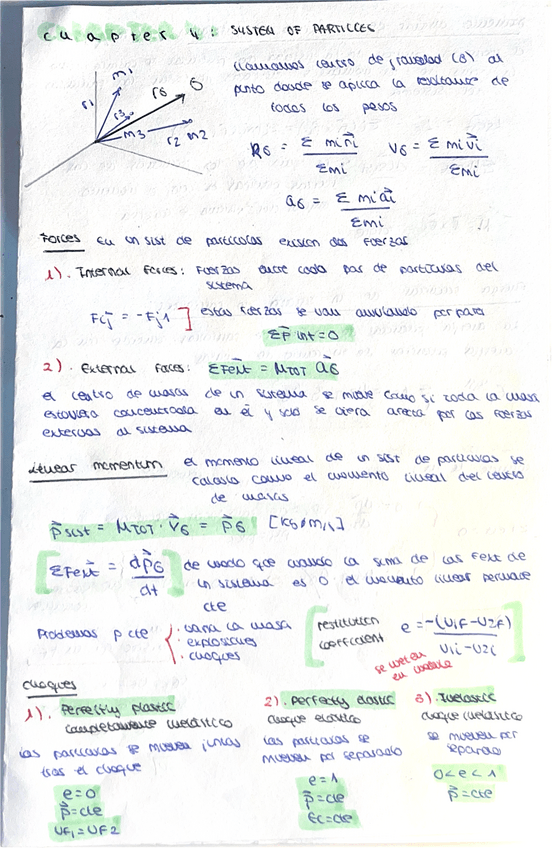 chapter 4: SYSTEM OF PARTICLES
llamamos centro de gravedad (G) al
punto donde se aplica la resultante de
todos los pesos
r1 m1 r6 G
r3
m3 r2 m2
RG = Σ mi r⃗i / Σmi    VG = Σ mi v⃗i / Σmi
aG = Σ mi a⃗i / Σmi
Forces en un sist de partículas existen dos fuerzas
1). Internal forces: Fuerzas entre cada par de partículas del
sistema
Fij = -Fji ] estas fuerzas se van anulando por pares
ΣF int = 0
2). External forces: ΣF⃗ext = MTOT a⃗G
el centro de masas de un sistema se mueve como si toda la masa
estuviera concentrada en él y solo se viera afecta por las fuerzas
externas al sistema
Linear momentum el momento lineal de un sist de partículas se
calcula como el momento lineal del centro
de masas
p⃗sist = MTOT · v⃗G = p⃗G [kg·m/s]
[ΣF⃗ext = dp⃗G / dt] de modo que cuando la suma de las Fext de
un sistema es 0 el momento lineal permane
cte
Problemas p cte { · varía la masa
· explosiones
· choques
[restitution coefficient e = -(v1F - v2F) / v1i - v2i]
se meten
en
choques
1). Perfectly plastic
completamente inelástico
las partículas se mueven juntas
tras el choque
e=0
p⃗=cte
vF1 = vF2
2). perfectly elastic
choque elástico
las partículas se
mueven por separado
e=1
p⃗=cte
Ec=cte
3). Inelastic
choque inelástico
se mueven por
separado
0<e<1
p⃗=cte